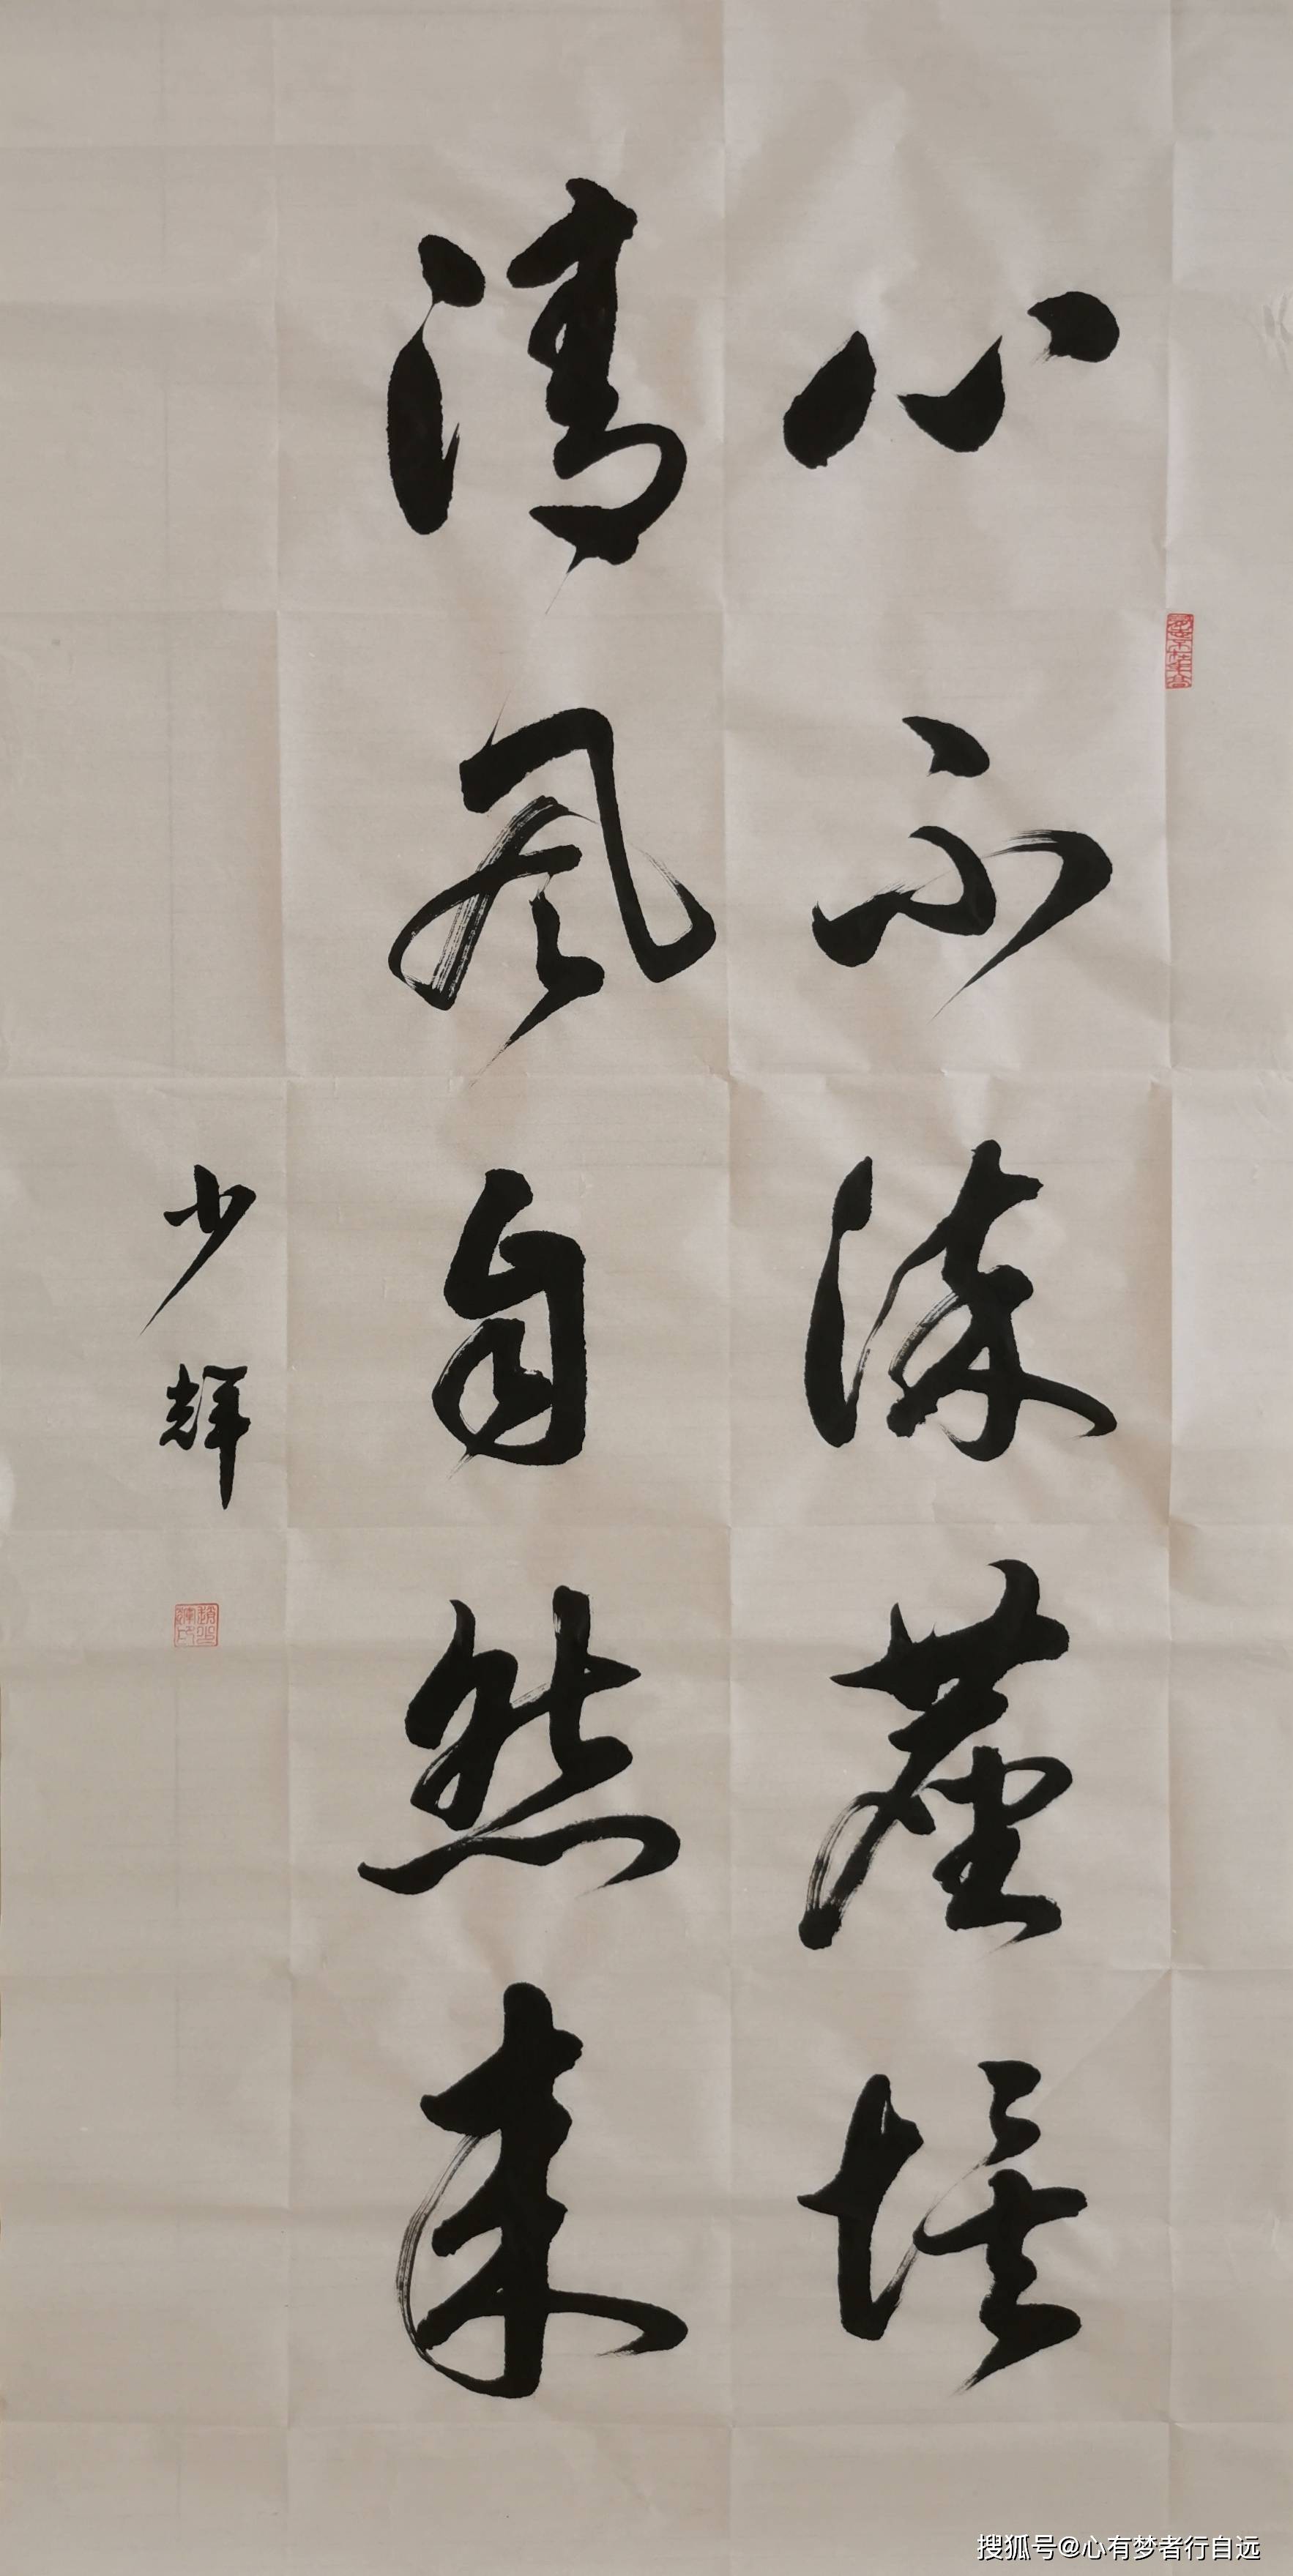 心不染塵埃
清風自然来
少輝
搜狐号@心有梦者行自远